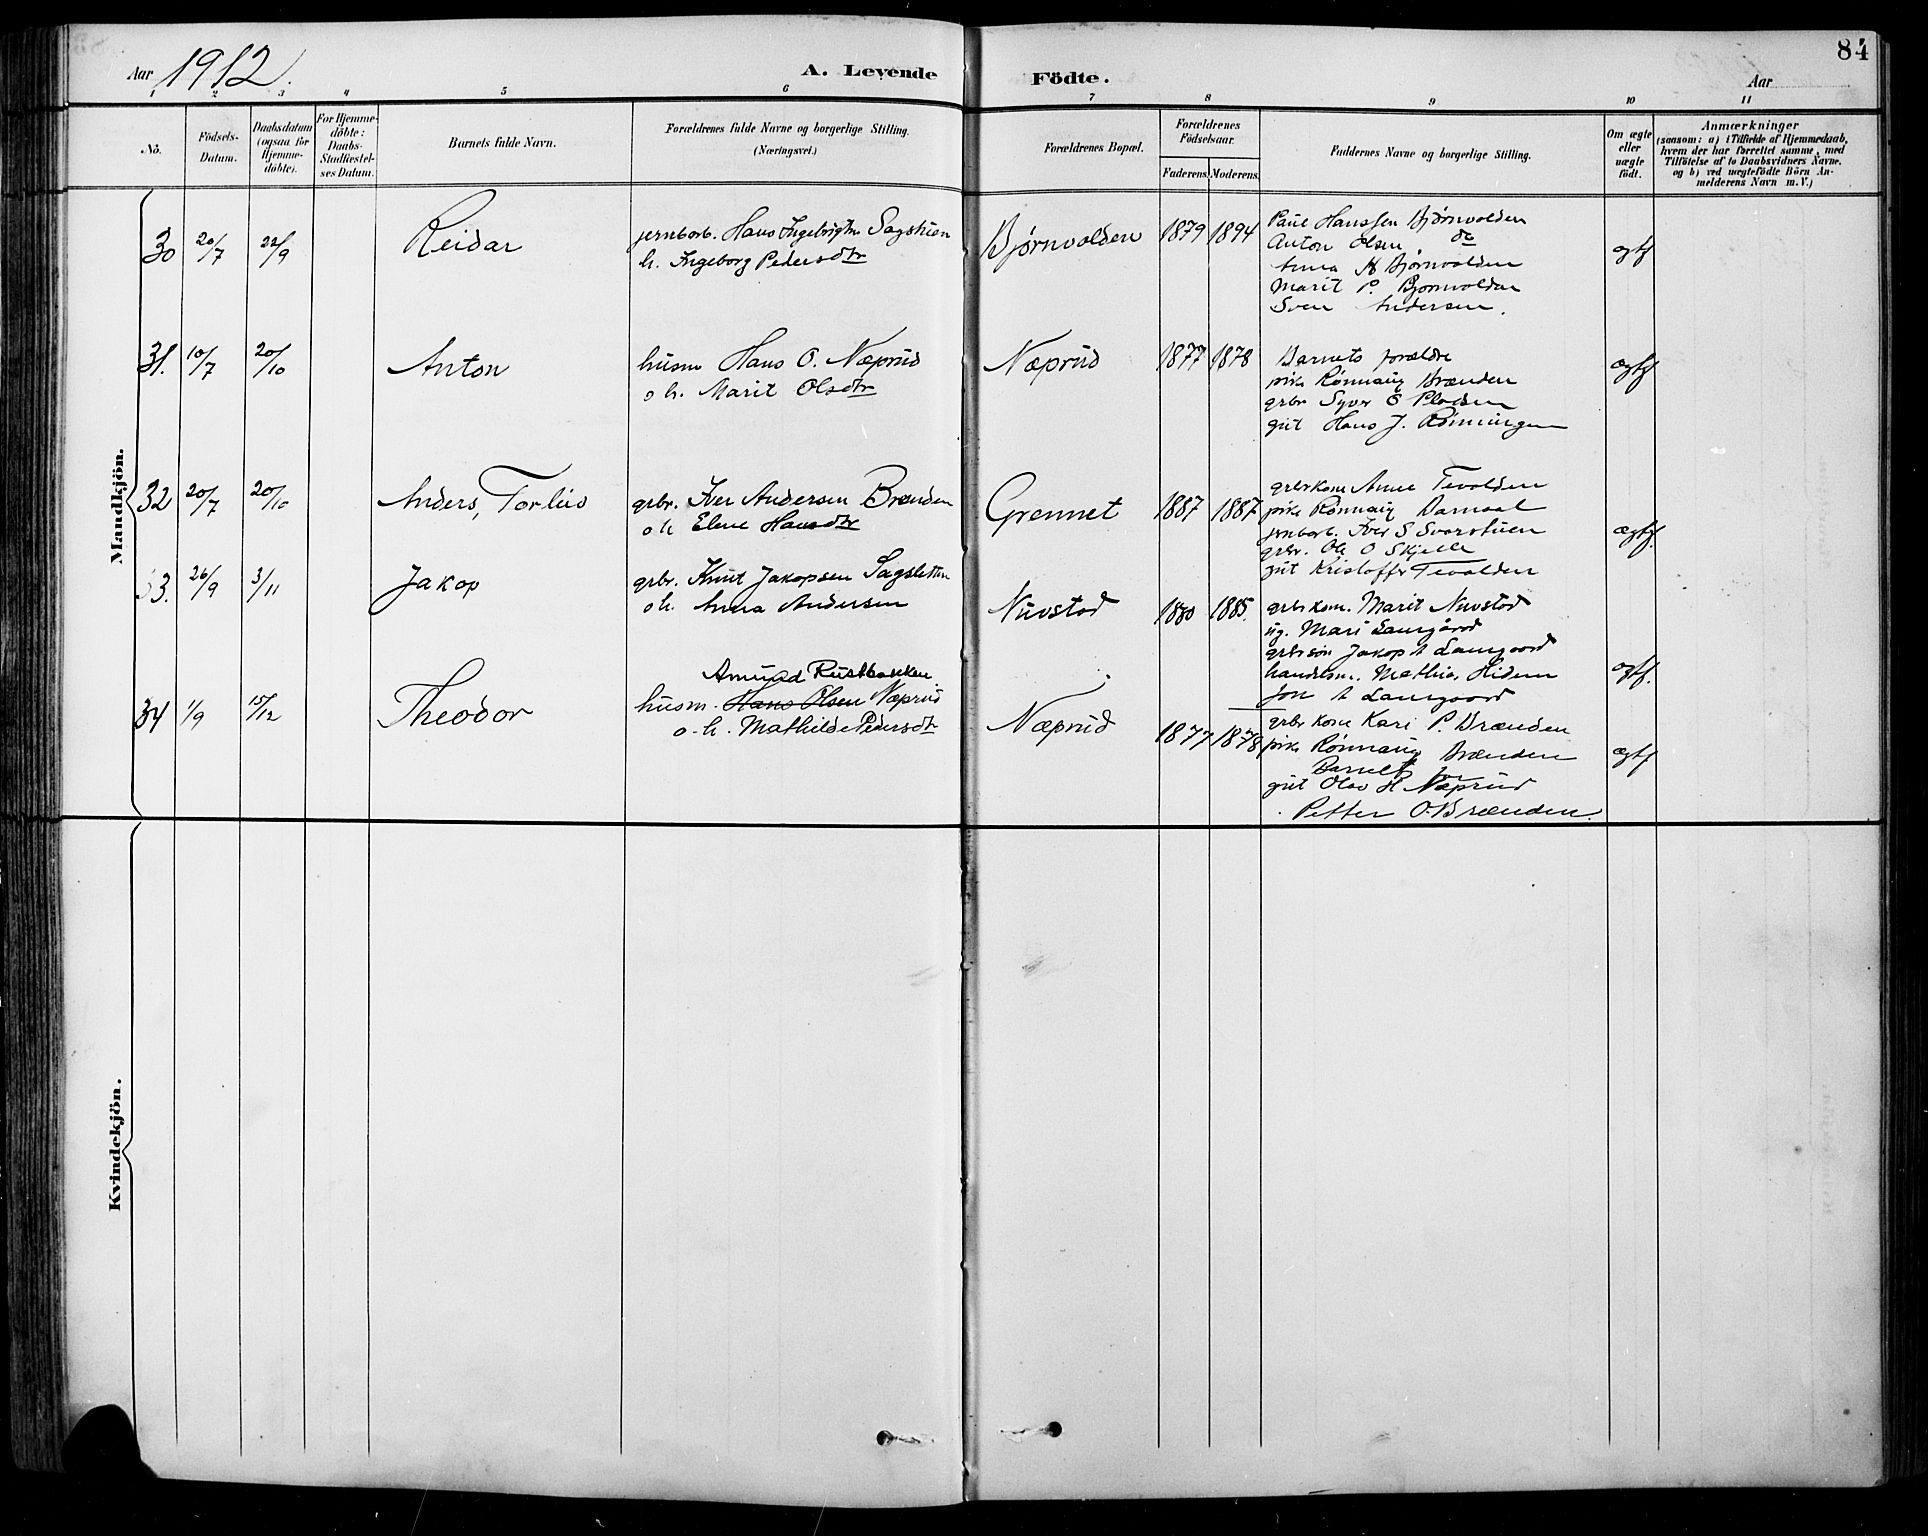 84
Aar 1912. A. Levende Födte. Aar
1 2 3 4 5 6 7 8 9 10 11
No.
Födsels-Datum.
Daabsdatum (ogsaa for Hjemme-döbte).
For Hjemme-döbte: Daabs-Stadfæstel-ses Datum.
Barnets fulde Navn.
Forældrenes fulde Navne og borgerlige Stilling.
(Næringsvei.)
Forældrenes Bopæl.
Forældrenes Födselsaar.
Faderens. Moderens.
Faddernes Navne og borgerlige Stilling.
Om ægte eller uægte födt.
Anmærkninger
(saasom: a) i Tilfælde af Hjemmedaab,
hvem der har forrettet samme, med
Tilföielse af to Daabsvidners Navne,
og b) ved uægtefödte Börn An-
melderens Navn m. V.)
Mandkjön.
30 20/7 22/9 Reidar
jernbarb. Hans Ingebrigtsn Sagstuen
h. Ingeborg Pedersdtr
Bjørnvolden 1879 1894
Paul Hanssen Bjørnvolden
Anton Olsen do
Anna H Bjørnvolden
Marit P. Bjørnvolden
Sven Andersen.
egtf
31. 10/7 20/10 Anton
husm Hans O. Næprud
o h. Marit Olsdtr
Næprud 1877 1878
Barnets forældre
pike Rønnaug Brænden
grbr Syver O Pladsen
gut Hans J. Rønningen
ægtf
32 20/7 20/10 Anders, Torleis
grbr. Iver Andersen Brænden
o h Elene Hansdtr
Grennet 1887 1887
grbrkone Anne Tevolden
pike Rønnaug
jernbarb. Iver S Svarstuen
grbr. Ole O Skjelle
gut Kristoffer Tevolden
ægtf.
33. 26/9 3/11 Jakop
grbr. Knut Jakopsen Sagsletten
o h. Anna Andersen
Nuvstad 1880 1885.
grbrkone. Marit Nuvstad
ug. Mari Laurgård
grbrsøn Jakop A Laurgaard
handelsm. Mathias Hidem
Jon A Laurgaard
egtf.
34 1/9 15/12 Theodor
Amund Rustbakken
husm. Hans Olsen Næprud
o. h. Mathilde Pedersdtr
Næprud 1877 1878
grbr kone Kari P. Brænden
pike Rønnaug Brænden
Barnets far
gut Olav H Næprud
Petter O. Brænden.
ægtf
Kvindekjön.